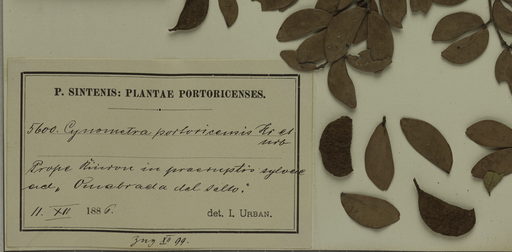 P. SINTENIS: PLANTAE PORTORICENSES.
5600. Cynometra portoricensis Kr et
urb
Prope Rincon in praeruptis sylvae
ad „
del Salto."
11. XII 1886.
det. I. URBAN.